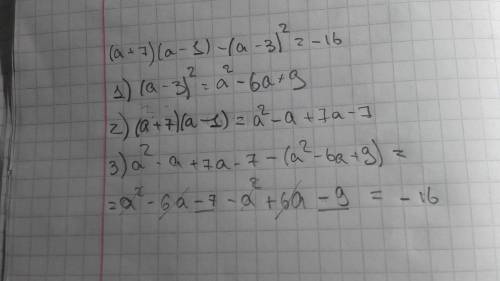 (a+7)(a-1)-(a-3)²=-16
1) (a-3)²=a²-6a+9
2) (a+7)(a-1)=a²-a+7a-7
3) a²-a+7a-7-(a²-6a+9)=
=a²-6a-7-a²+6a-9=-16